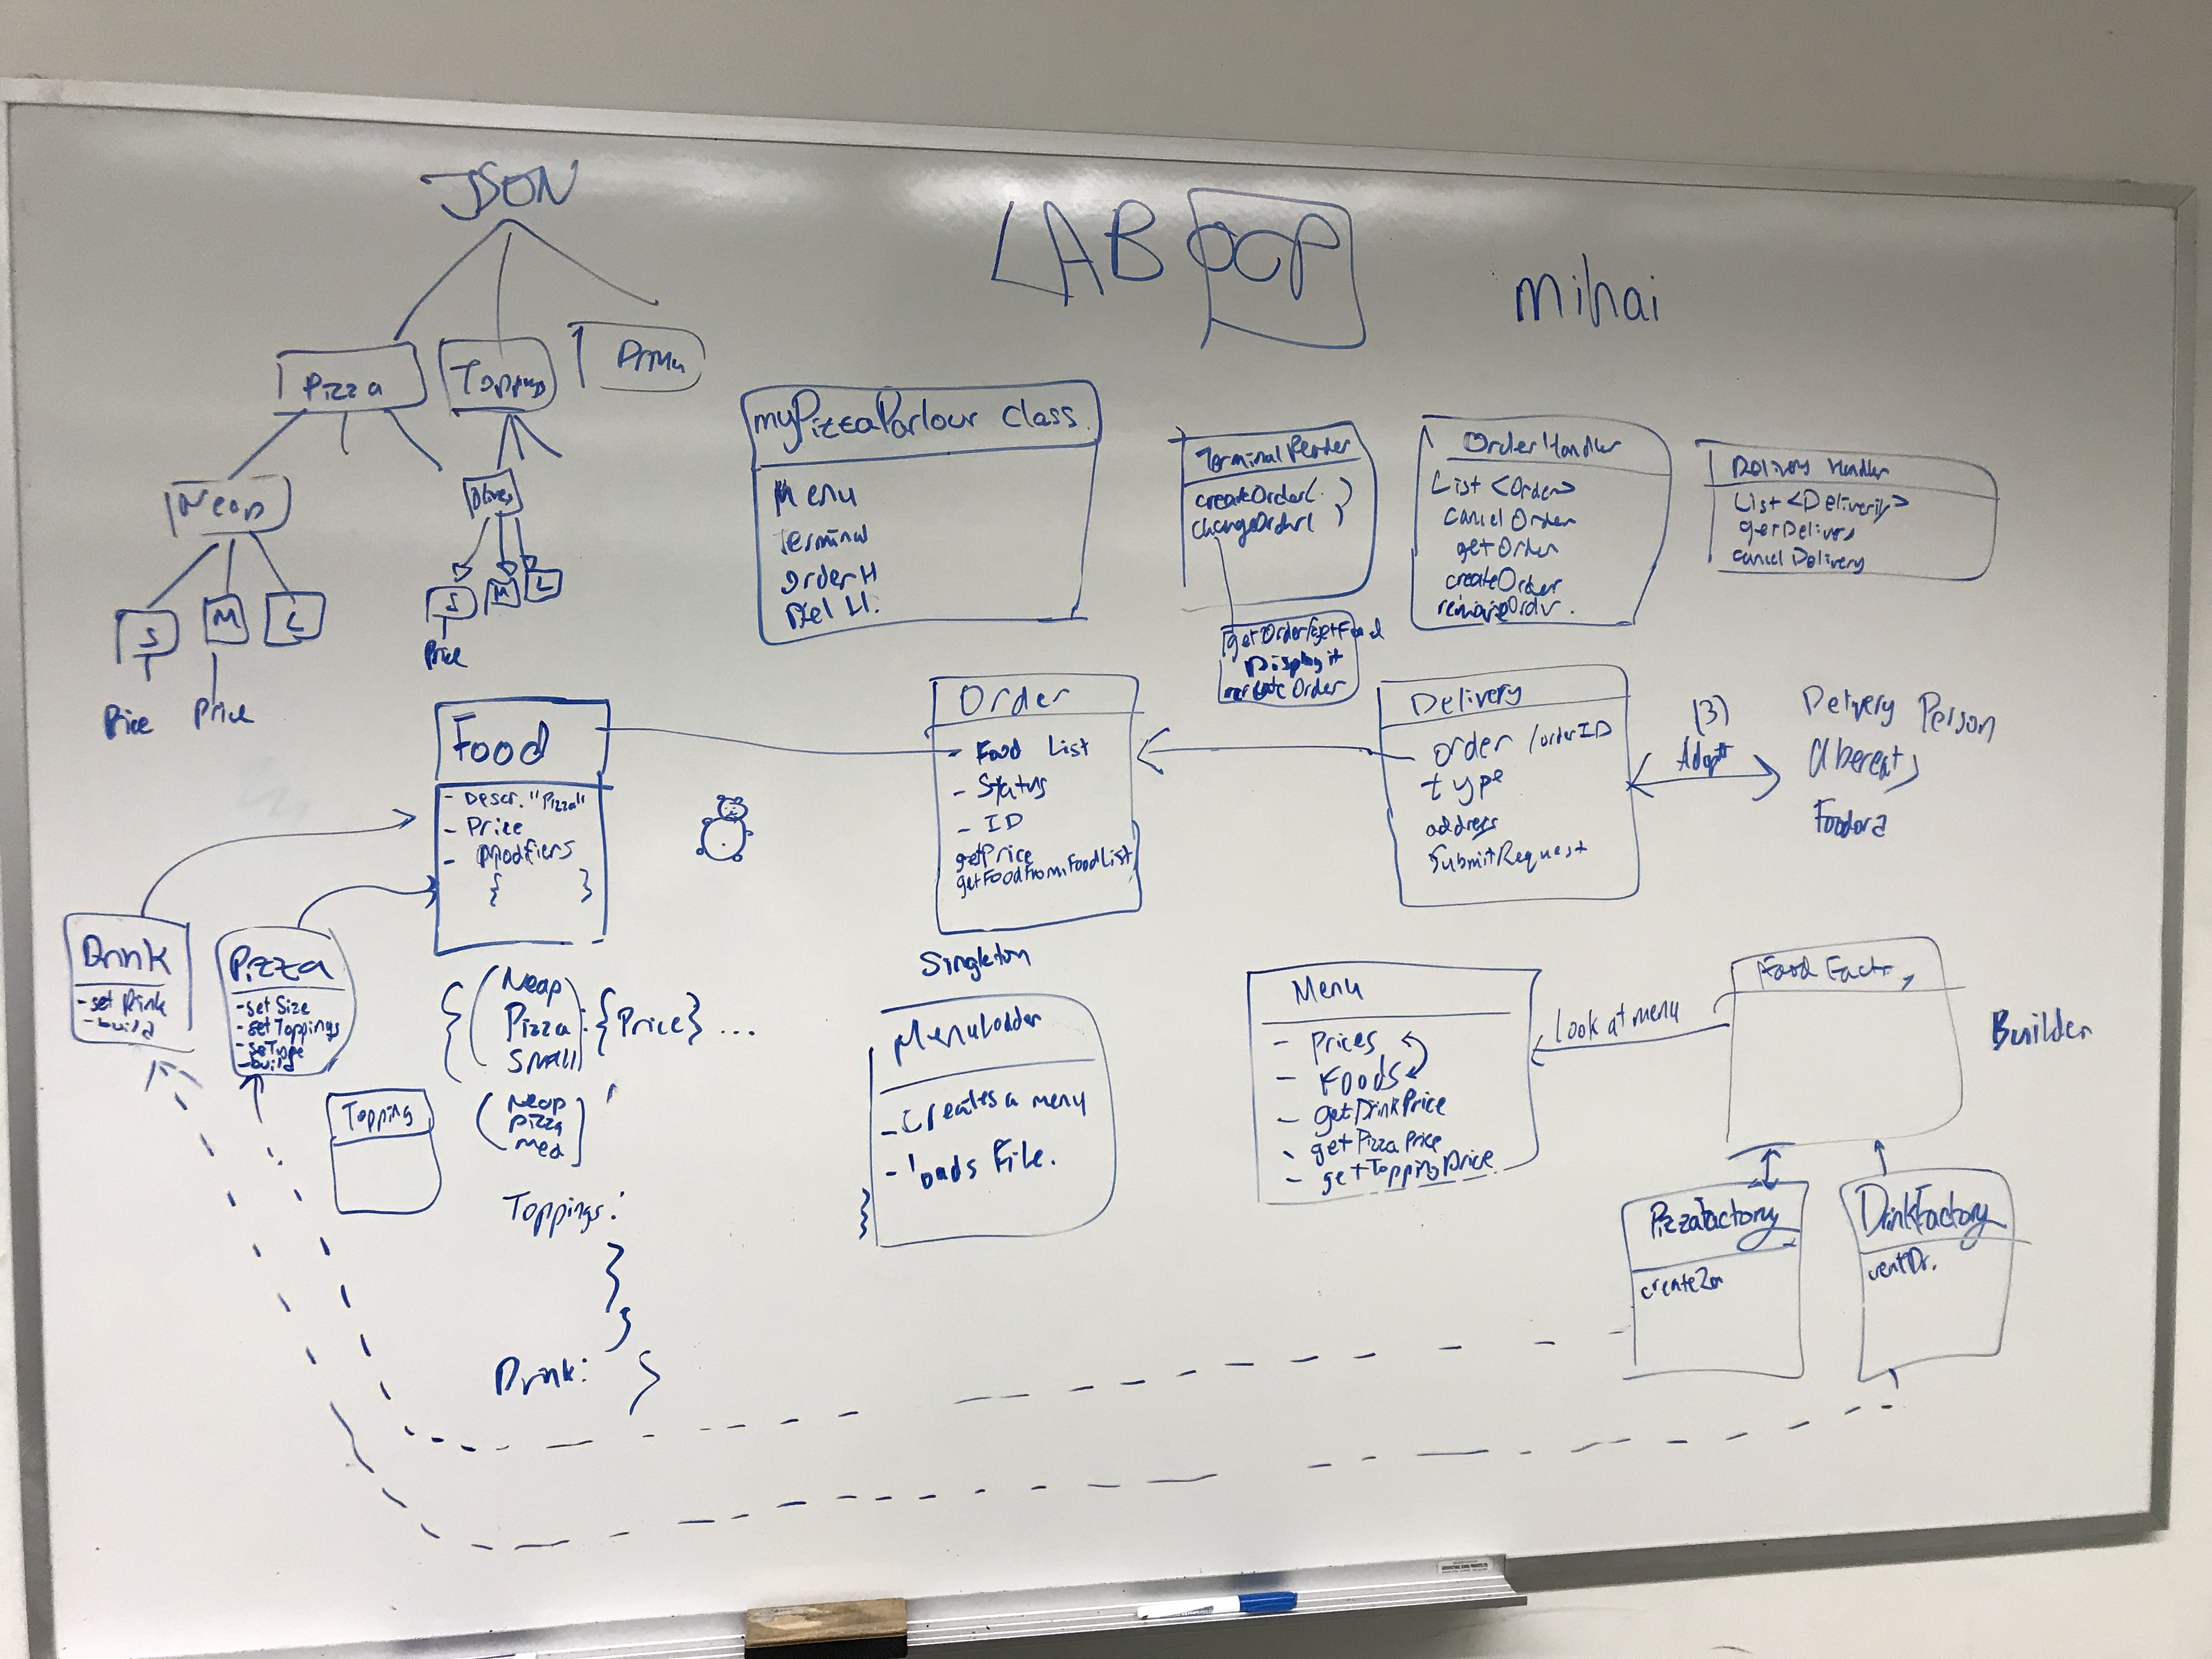 JSON
LAB OCP
Mihai
Pizza
Topping
Neap
Olives
S
M
L
S
M
L
Price
Price
Price
myPizzaParlour Class
Menu
Terminal
OrderH
Del H.
Terminal Reader
createOrder( )
changeOrder( )
getOrder/getFood
Display it
OrderHandler
List <Order>
cancel Order
get Order
createOrder
removeOrdr.
Delivery Handler
List <Deliveriy>
getDelivery
cancel Delivery
Food
- Descr. "Pizza"
- Price
- Modfiers
{ }
Order
- Food List
- Status
- ID
getPrice
getFoodFromFoodList
Delivery
order /orderID
type
address
SubmitRequest
(3)
Adapt
Delivery Person
Ubereats
Foodora
Drink
- set Drink
- build
Pizza
- set Size
- set Toppings
- seType
- build
Topping
{ ( Neap
Pizza : {Price} ...
Small
( Neap ,
Pizza
Med )
Toppings:
}
}
Drink: }
Singleton
MenuLoader
- Creates a menu
- loads File.
Menu
- Prices
- Foods
- getDrinkPrice
- getPizzaPrice
- getToppingPrice
Look at menu
Food Fact.
Builder
PizzaFactory
DrinkFactory